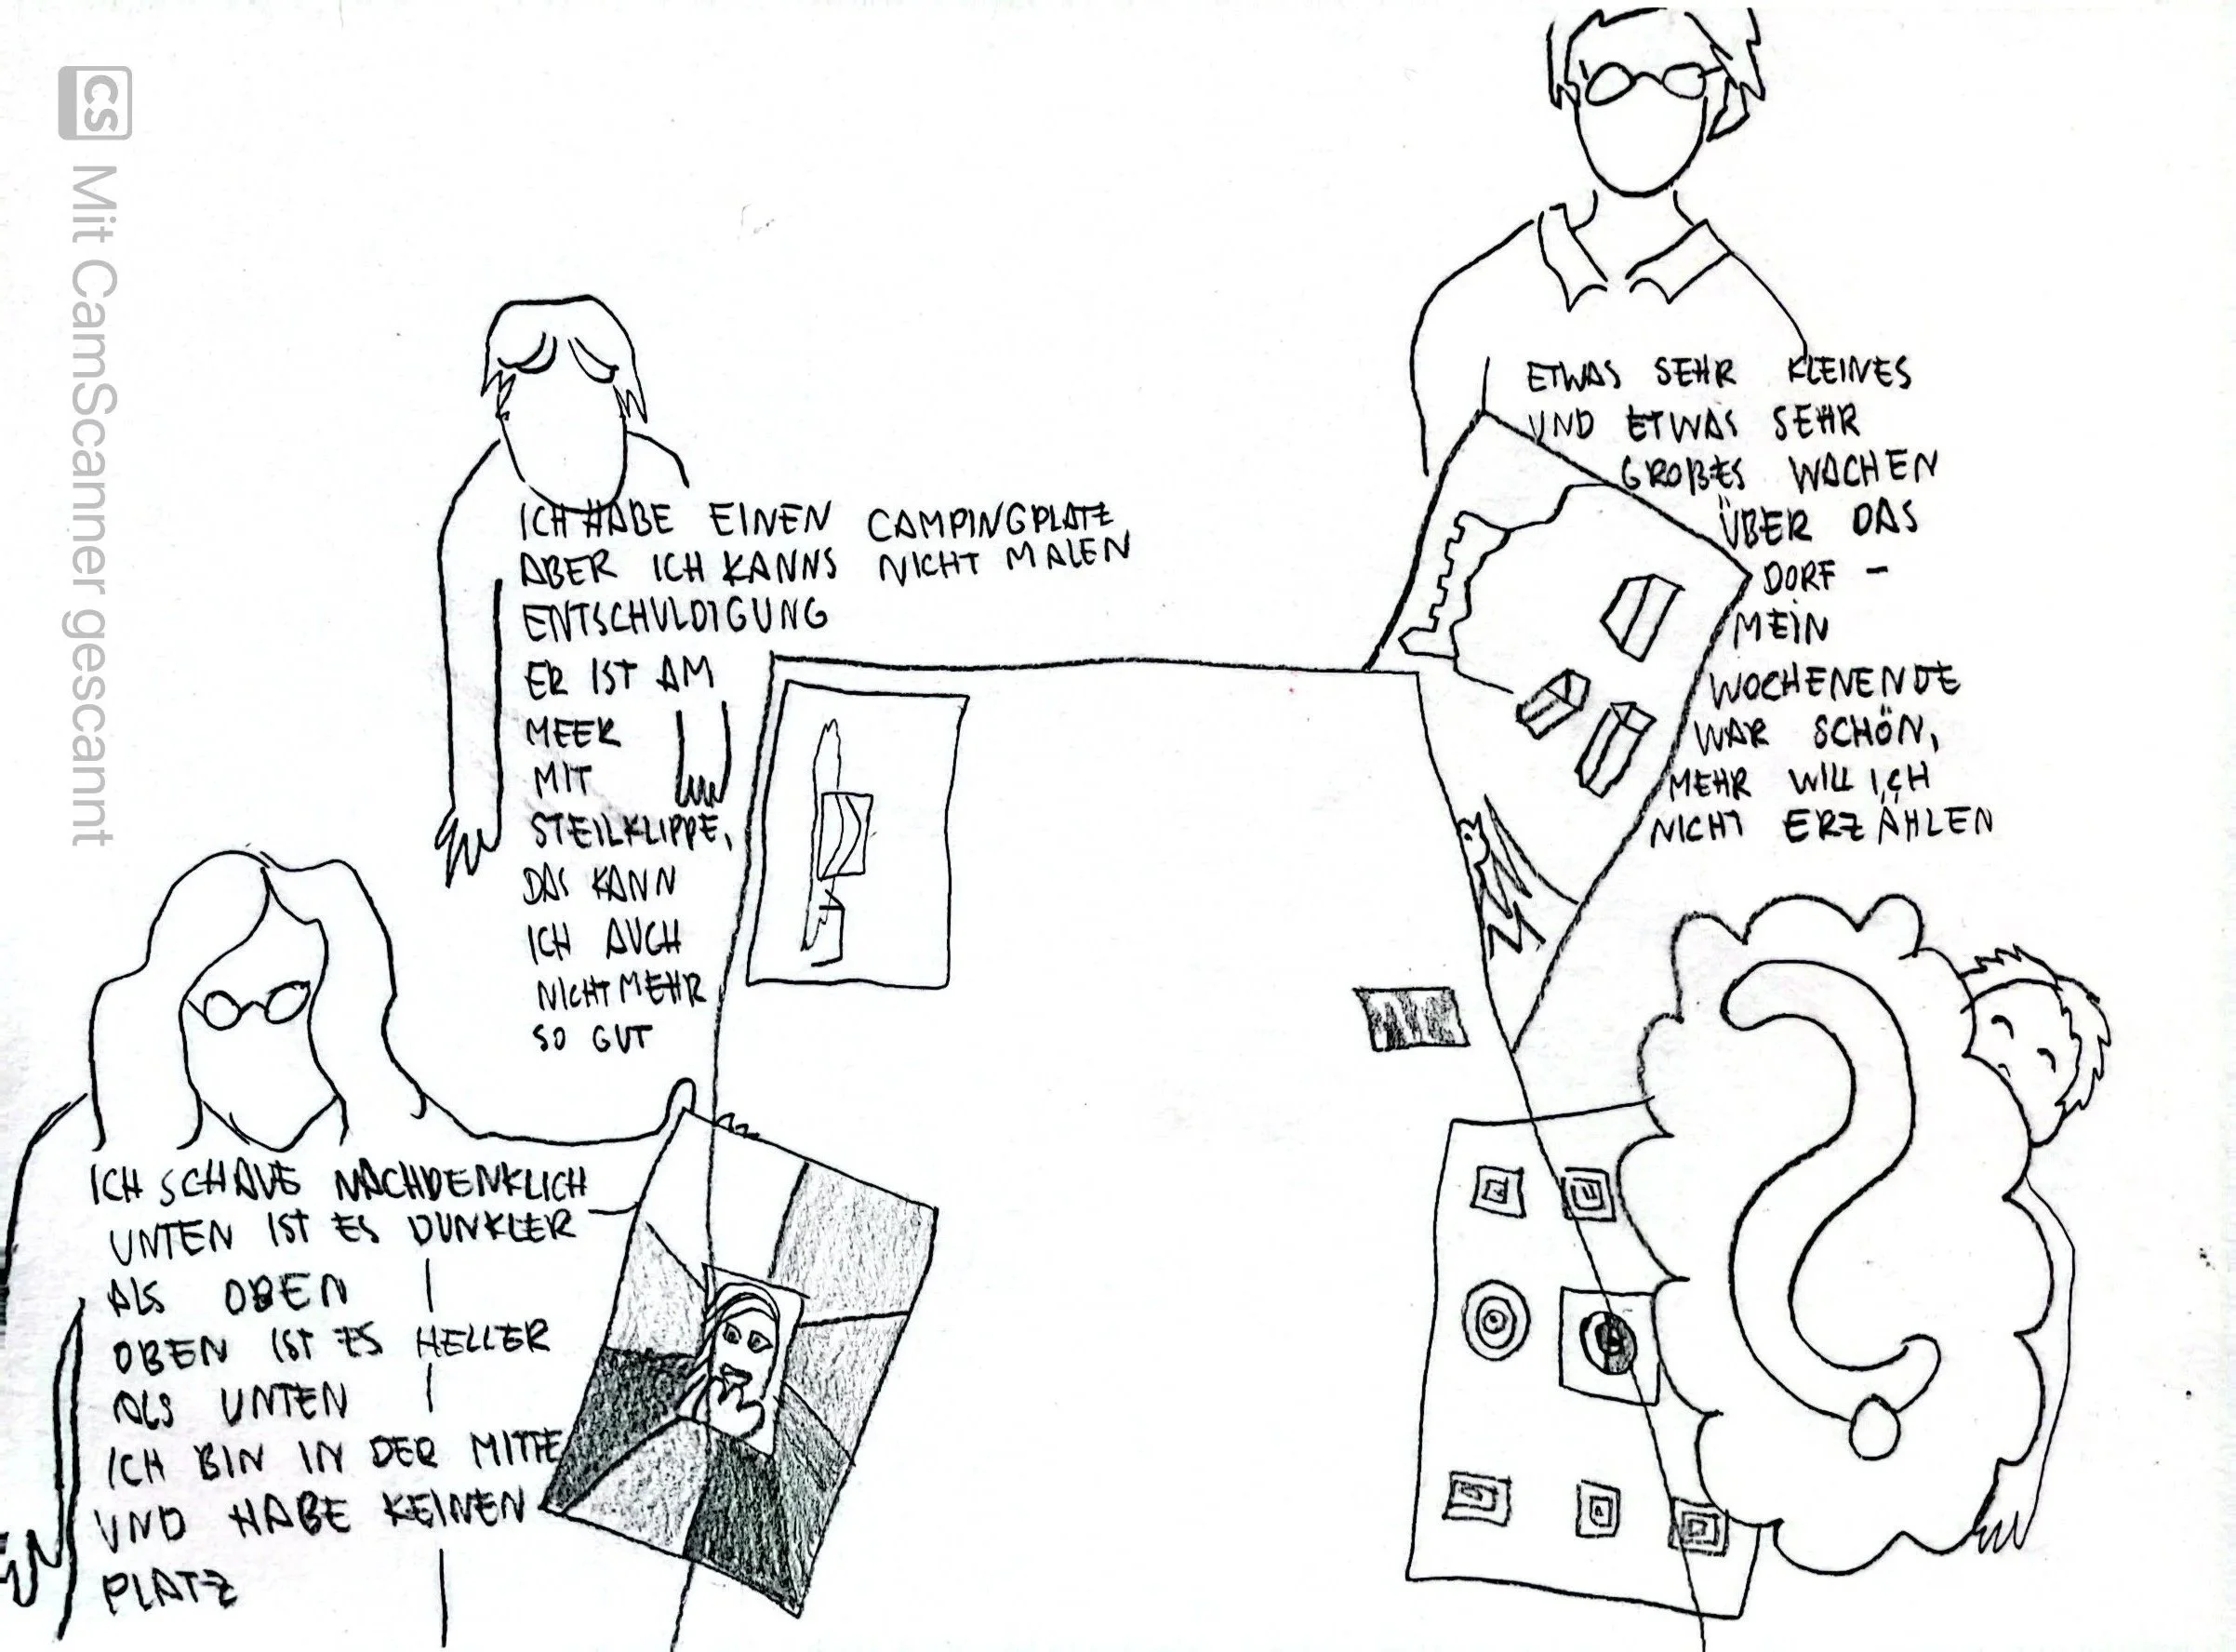 ICH HABE EINEN CAMPINGPLATZ
ABER ICH KANNS NICHT MALEN
ENTSCHULDIGUNG
ER IST AM
MEER
MIT
STEILKLIPPE,
DAS KANN
ICH AUCH
NICHT MEHR
SO GUT
ETWAS SEHR KLEINES
UND ETWAS SEHR
GROßES WACHEN
ÜBER DAS
DORF –
MEIN
WOCHENENDE
WAR SCHÖN,
MEHR WILL ICH
NICHT ERZÄHLEN
ICH SCHAUE NACHDENKLICH
UNTEN IST ES DUNKLER
ALS OBEN
OBEN IST ES HELLER
ALS UNTEN
ICH BIN IN DER MITTE
UND HABE KEINEN
PLATZ
?
CS Mit CamScanner gescannt